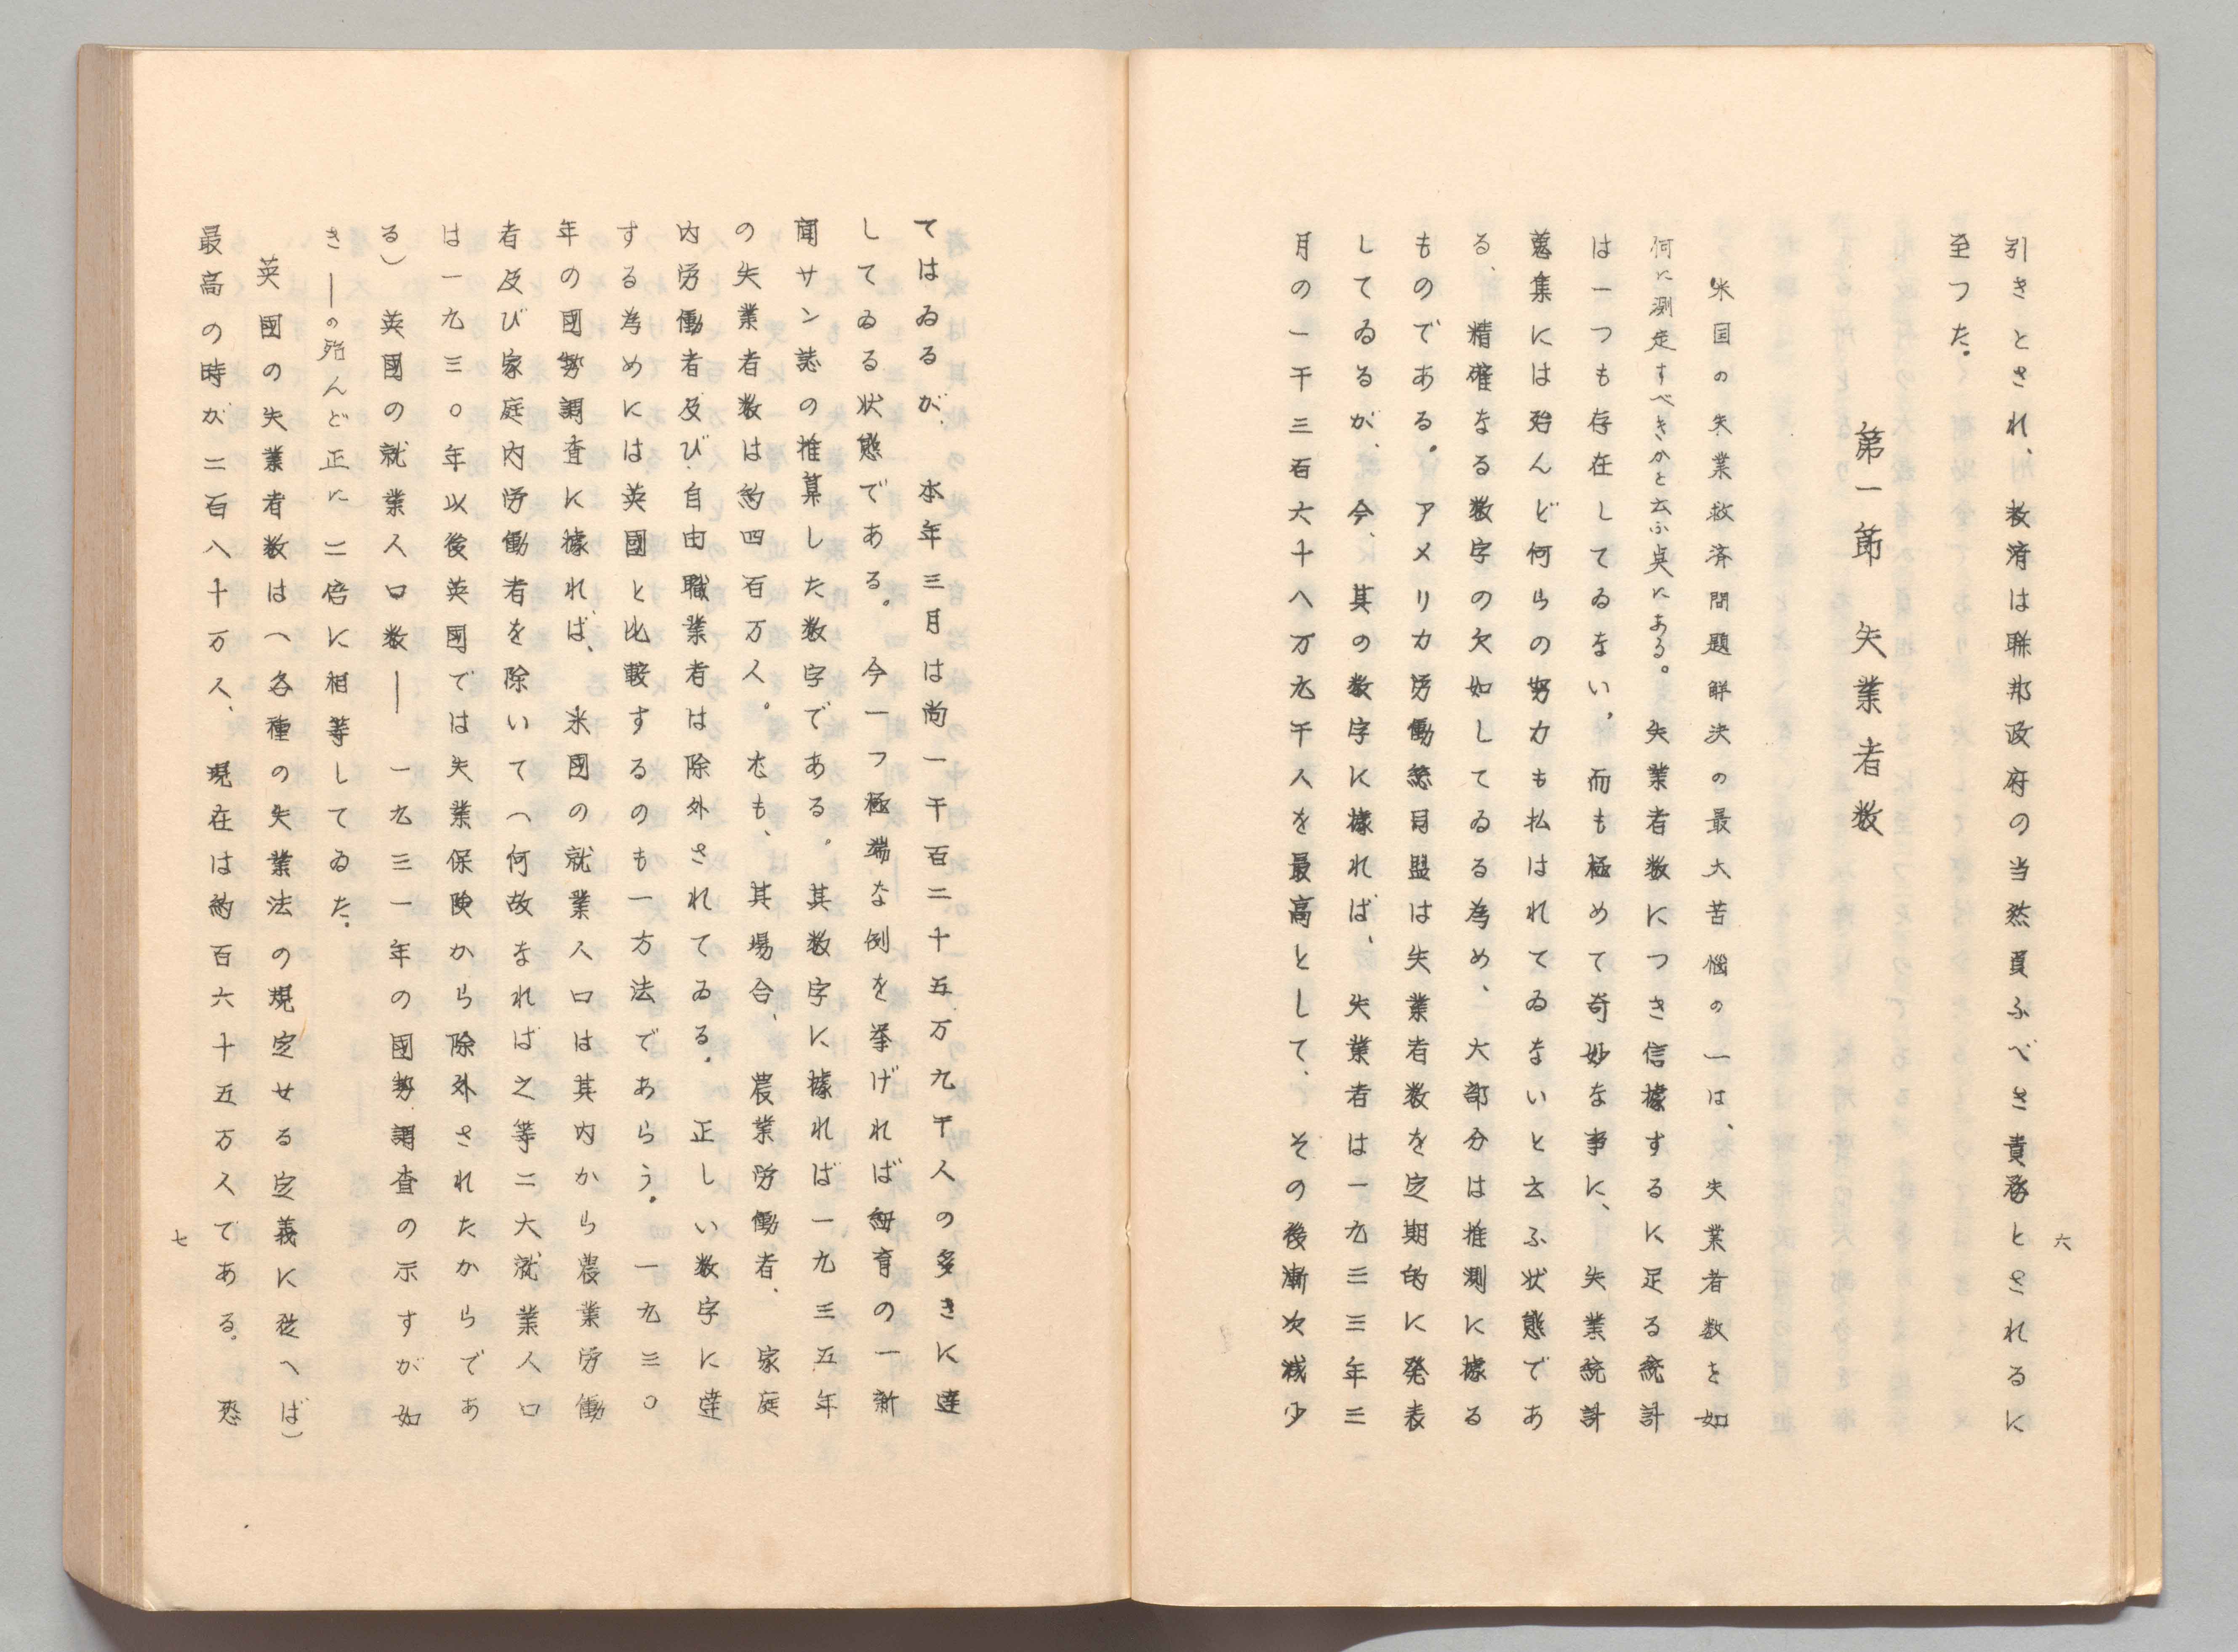 引きとされ、救済は聯邦政府の当然負ふべき責務とされるに
至つた。
第一節 失業者数
米国の失業救済問題解決の最大苦惱の一は、失業者数を如
何に測定すべきかと云ふ点にある。失業者数につき信據するに足る統計
は一つも存在してゐない。而も極めて奇妙な事に、失業統計
蒐集には殆んど何らの努力も払はれてゐないと云ふ状態であ
る、精確なる数字の欠如してゐる為め、大部分は推測に據る
ものである。アメリカ労働総同盟は失業者数を定期的に発表
してゐるが、今、其の数字に據れば、失業者は一九三三年三
月の一千三百六十八万九千人を最高として、その後漸次減少
六
てはゐるが、本年三月は尚一千百二十五万九千人の多きに達
してゐる状態である。今一つ極端な例を挙げれば紐育の一新
聞サン誌の推算した数字である。其数字に據れば一九三五年
の失業者数は約四百万人。尤も、其場合、農業労働者、家庭
内労働者及び自由職業者は除外されてゐる。正しい数字に達
する為めには英國と比較するのも一方法であらう。一九三〇
年の國勢調査に據れば、米國の就業人口は其内から農業労働
者及び家庭内労働者を除いて（何故なれば之等二大就業人口
は一九三〇年以後英國では失業保険から除外されたからであ
る）英國の就業人口数――一九三一年の國勢調査の示すが如
き――の殆んど正に二倍に相等してゐた。
英國の失業者数は（各種の失業法の規定せる定義に従へば）
最高の時が二百八十万人、現在は約百六十五万人である。恐
七